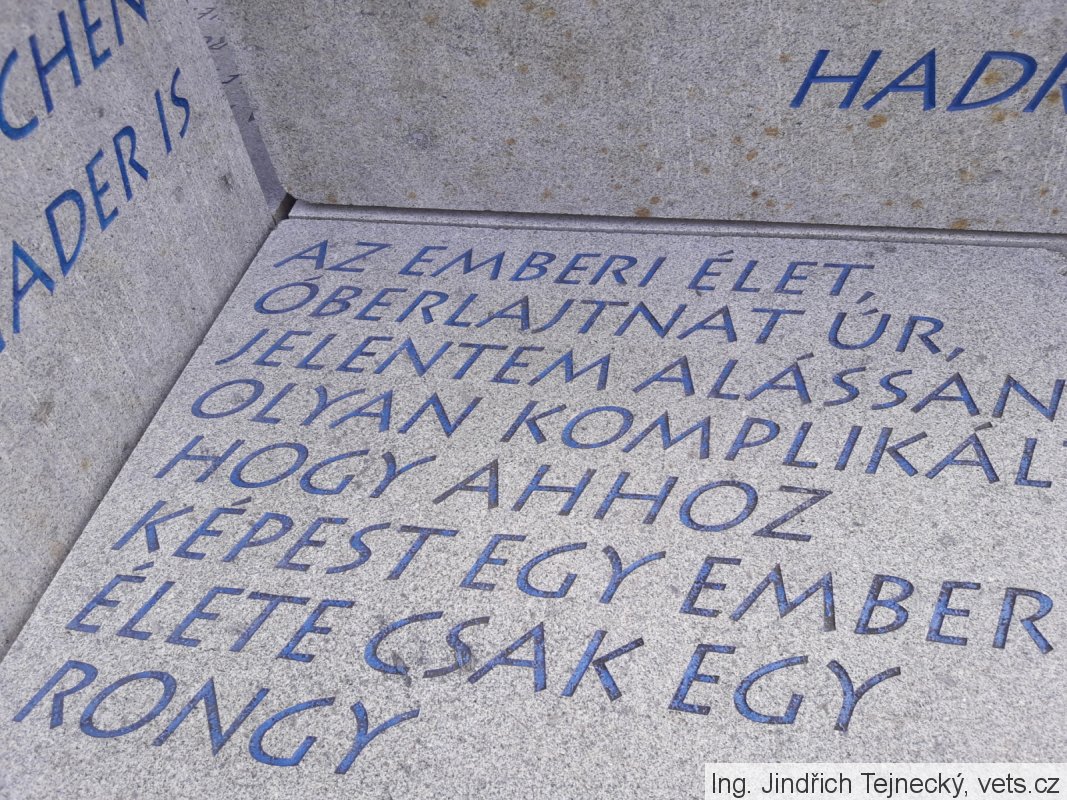 CHEN
ADER IS
HAD
AZ EMBERI ÉLET,
ÓBERLAJTNAT ÚR,
JELENTEM ALÁSSAN
OLYAN KOMPLIKÁL
HOGY AHHOZ
KÉPEST EGY EMBER
ÉLETE CSAK EGY
RONGY
Ing. Jindřich Tejnecký, vets.cz